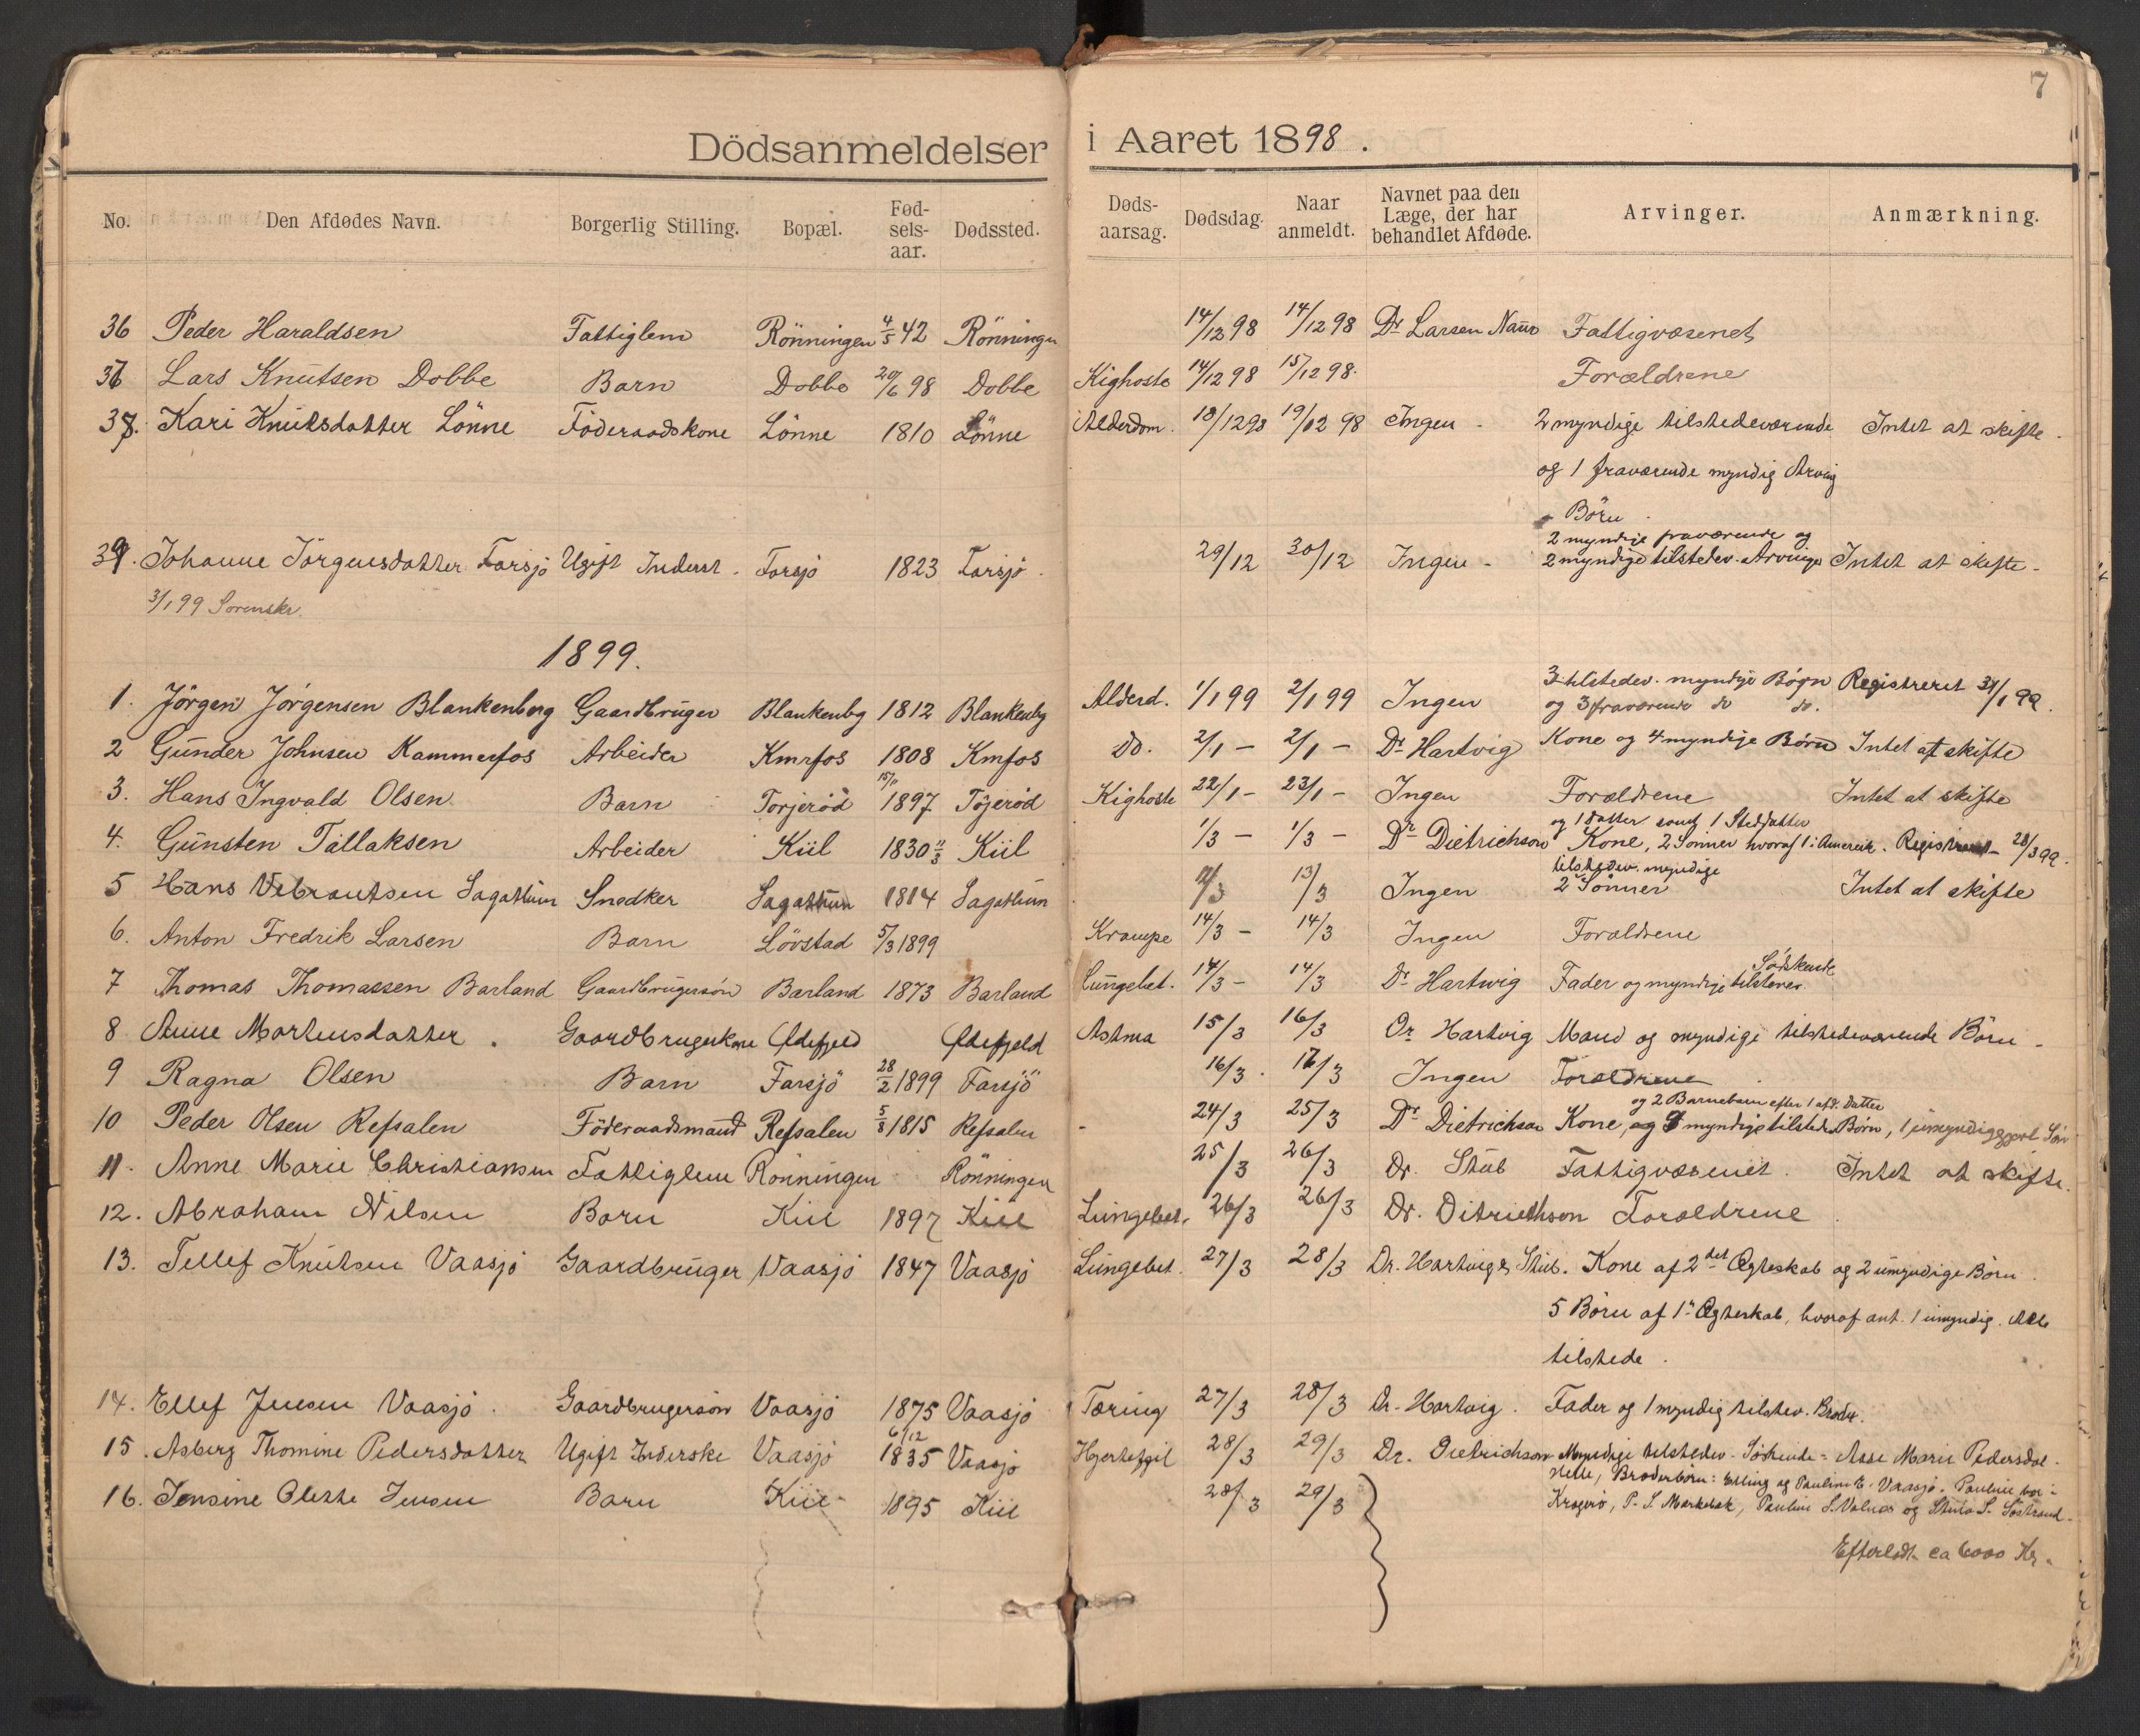 7
Dödsanmeldelser i Aaret 1898.
No. Den Afdødes Navn. Borgerlig Stilling. Bopæl. Fød-sels-aar. Dødssted. Døds-aarsag. Dødsdag. Naar anmeldt. Navnet paa den Læge, der har behandlet Afdøde. Arvinger. Anmærkning.
36 Peder Haraldsen Fattiglem Rönningen 4/5 42 Rönningen 14/12 98 14/12 98 Dr Larsen Fattigvæsenet
37 Lars Knutsen Dobbe Barn Dobbe 20/6 98 Dobbe Kighoste 14/12 98 15/12 98. Forældrene
38. Kari Knutsdatter Lönne Föderaadskone Lönne 1810 Lönne Alderdom. 18/12 98 19/12 98 Ingen - 2 myndige tilstedeværende Intet at skifte.
og 1 fraværende myndig Arving
- Börn.
2 myndige fraværende og
39. Johanne Jörgensdatter Farsjö Ugift Inderst. Farsjö 1823 Farsjö. 29/12 30/12 Ingen - 2 myndige tilstedev. Arvinger Intet at skifte -
3/1 99 Sorenskr.
1899.
3 tilstedev. myndige Börn Registreret 31/1 99.
1. Jörgen Jörgensen Blankenberg Gaardbruger Blankenbg 1812 Blankenbg Alderd. 1/1 99 2/1 99 Ingen og 3 fraværende do do.
2 Gunder Johnsen Kammerfos Arbeider Kmrfos 1808 Kmfos do. 2/1 - 2/1 - Dr Hartvig Kone og 4 myndige Börn Intet at skifte
3. Hans Ingvald Olsen Barn Torjeröd 15/11 1897 Töjeröd Kighoste 22/1 - 23/1 - Ingen Forældrene Intet at skifte
og 1 Datter samt 1 Steddatter
4. Gunsten Tallaksen Arbeider Kiil 1830 11/3 Kiil 1/3 - 1/3 - Dr Dietrichson Kone, 2 Sönner hvoraf 1 i Amerik. Registreret - 28/3 99.
tilstedev. myndige
5 Hans Vebrantsen Sagatun Snedker Sagatun 1814 Sagatun 13/3 Ingen 2 Sönner Intet at skifte
6. Anton Fredrik Larsen Barn Lövstad 5/3 1899 Krampe 14/3 - 14/3 Ingen Forældrene
Södskende
7 Thomas Thomassen Barland Gaardbrugersön Barland 1873 Barland Lungebet. 14/3 - 14/3 Dr Hartwig Fader og myndige tilstever.
8 Anne Mortensdatter. Gaardbrugerkone Ødefjeld Ødefjeld Astma 15/3 16/3 Dr Hartvig Mand og myndige tilstedeværende Börn -
9 Ragna Olsen Barn Farsjö 28/2 1899 Farsjö 16/3. 17/3 Ingen Forældrene
og 2 Barnebarn efter 1 afd. Datter
10 Peder Olsen Refsalen Föderaadsmand Refsalen 5/8 1815 Refsalen - 24/3 25/3 Dr Dietrichson Kone, og myndige tilsteds Börn, 1 umyndiggjort Sön
11. Anne Marie Christiansen Fattiglem Rönningen Rönningen 25/3 26/3 Dr. Stub Fattigvæsenet. Intet at skifte.
12. Abraham Nilsen Barn Kiil 1897 Kiil Lungebet. 26/3 26/3 Dr. Ditriethson Forældrene
13. Tellef Knutsen Vaasjö Gaardbruger Vaasjö 1847 Vaasjö Lungebet. 27/3 28/3 Dr. Hartvig & Stub. Kone af 2det Ægteskab og 2 umyndige Börn.
5 Börn af 1ste Ægteskab, hvoraf ant. 1 umyndig. Alle
tilstede.
14. Ellef Jensen Vaasjö. Gaardbrugersön Vaasjö 1875 Vaasjö Tæring 27/3 28/3 Dr. Hartvig. Fader og 1 myndig tilstev. Broder.
15. Asberg Thomine Pedersdatter Ugift Inderske Vaasjö 6/12 1835 Vaasjö Hjertefeil 28/3 29/3 Dr. Dietrichson Myndige tilstedev. Söskende - Asse Marie Pedersdat.
Broderbörn: Elling og Pauline E. Vaasjö. Pauline
16. Jensine Olette Jensen Barn Kiil 1895 Kiil 28/3 29/3 Kragerö, P. S. Markebæk, Pauline S. Valnæs og S. Söstrand.
Efterladt ca 6000 Kr.